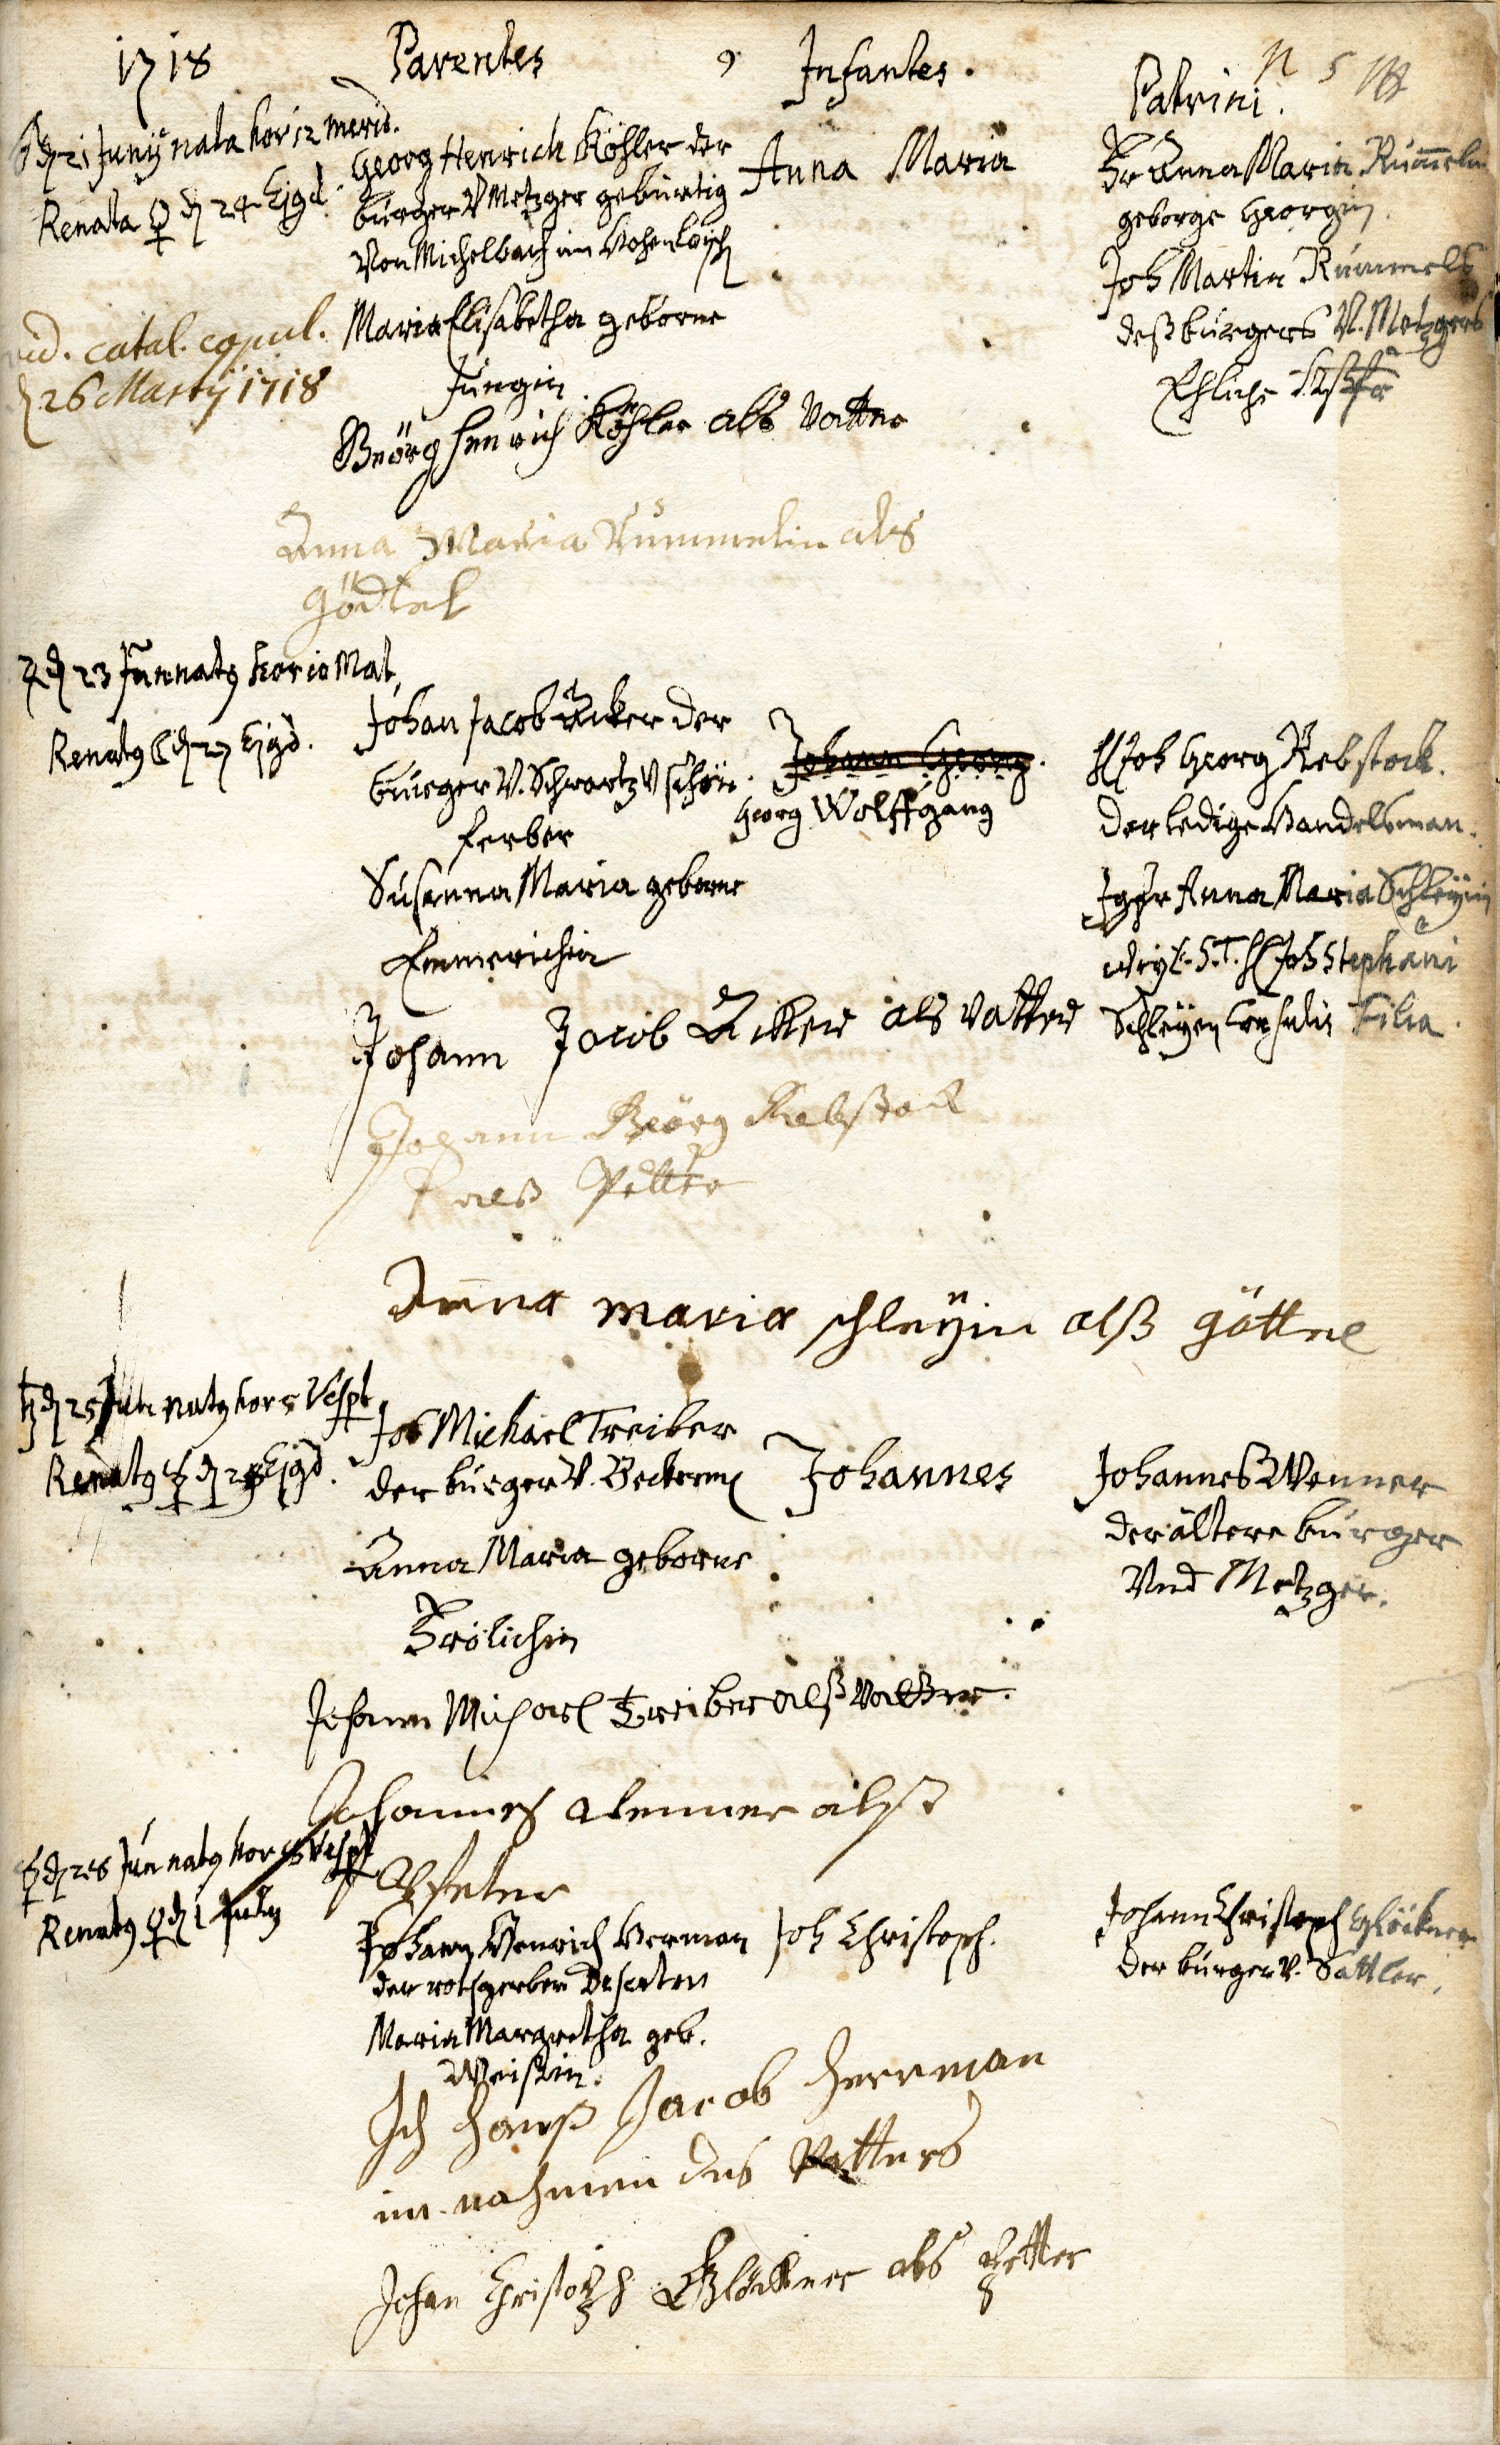 1718 Parentes Infantes. Patrini.
d 21 Junÿ nata hor 12 merid.
Renata ♀ d 24 Ejgd.
Georg Henrich Köhler der
burger V Metzger gebürtig
Von Michelbach im Hohenloisch
Maria Elisabetha geborne
Jungin
Anna Maria
Fr Anna Maria Rum̃elin
geborne Georgin
Joh Martin Rummels
deß burgers V. Metzgers
Ehliche
vid. catal. copul.
d 26 Martÿ 1718
Geörg Henrich Köhler als Vatter
Anna Maria Rummelin als
Gödtel
♃ d 23 Jun natq hor 10 Mat.
Renatq d 27 Ejgd.
Johan Jacob Acker der
burger V. Schwartz V schön
ferber
Susanna Maria geborne
Emmerichin
Johann Georg.
Georg Wolffgang
H Joh Georg Rebstock.
der ledige Handelsman.
Jgfr Anna Maria Schleÿin
weÿl. S. T. H Joh Stephani
Schleÿen Consulis Filia.
Johann Jacob Acker als Vatter
Johann Geörg Rebstock
alß Petter
Anna maria schleÿin alß göttel
♄ d 25 Jun natq hor 5 Vesp
Renatq d 28 Ejgd.
Joh Michael Treiber
der burger V. Becker
Anna Maria geborne
Frölichin
Johannes
Johannes Wenner
der ältere burger
Vnd Metzger.
Johann Michael Treiber alß Vatter.
Johannes Wenner alß
Pfetter
d 28 Jun natq hor Vesp
Renatq ♀ d 1 July
Johann Henrich Herman
der rothgerber
Maria Margretha geb.
Weissin.
Joh Christoph.
Johann Christoph Glöckner
der burger V. Sattler.
Ich Hanß Jacob Herrman
im nahmen des Vatters
Johan Christoph Glöckner als Petter